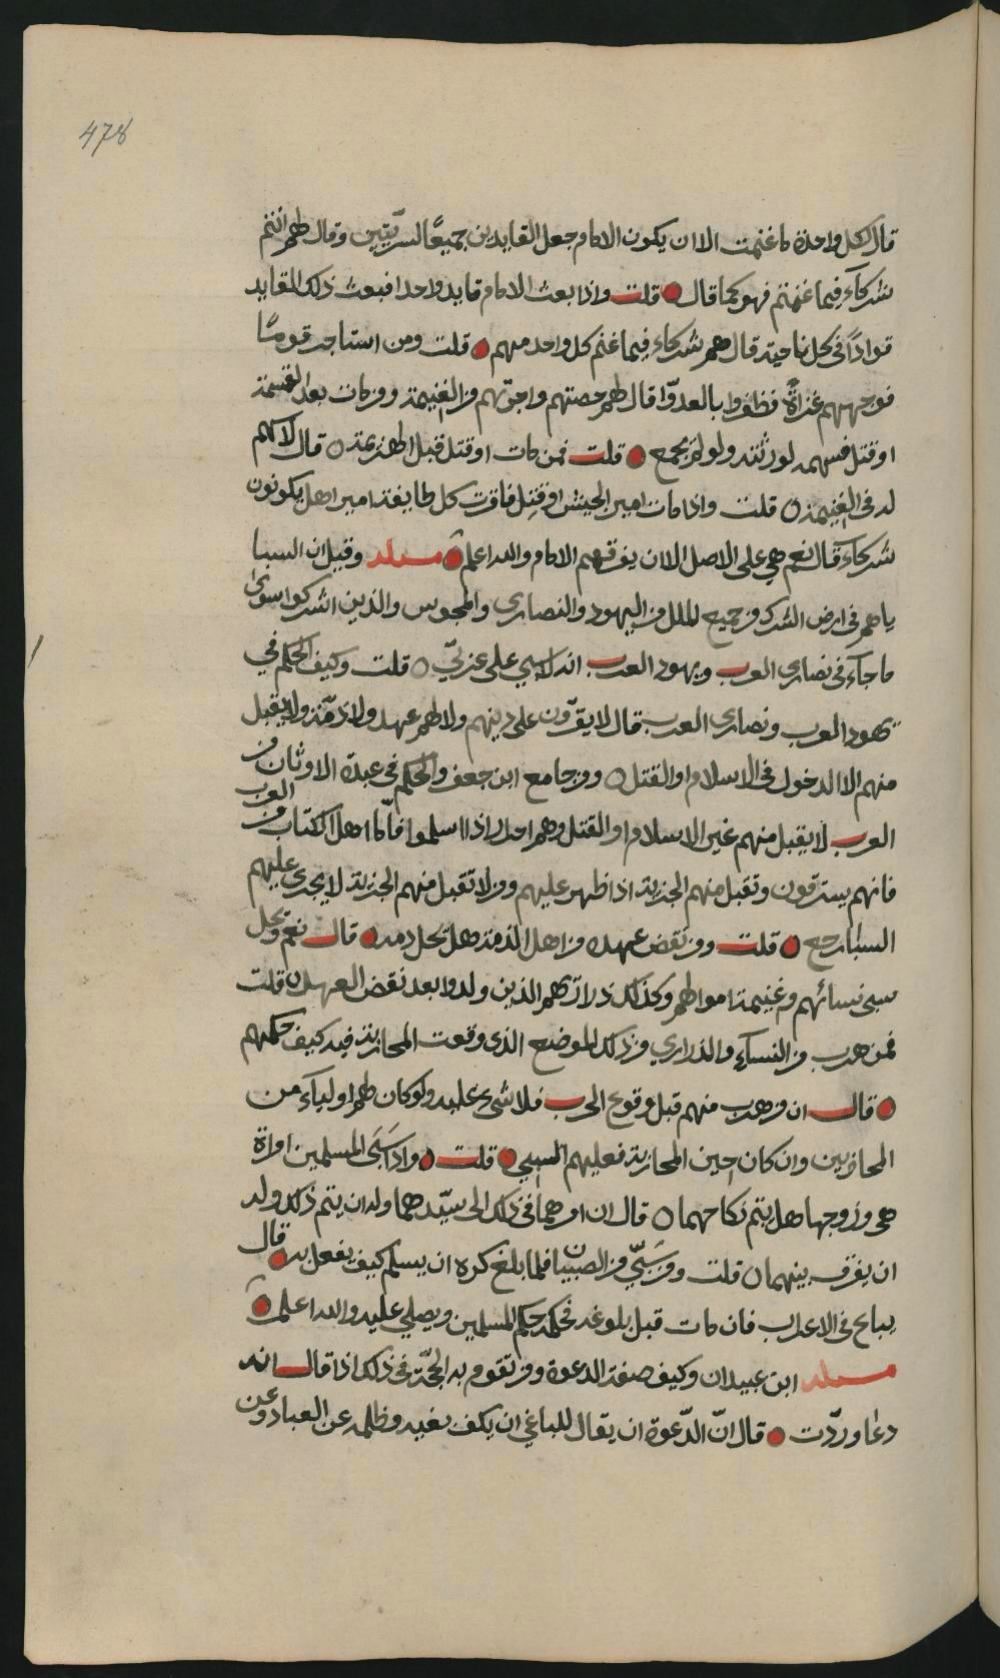 478
قال لكل واحدة ما غنمت الا ان يكون الامام جعل القايدين جميعًا لسريتين وقال لهم انتم
شركآء فيما غنمتم فهو كما قال قلت واذا بعث الامام قايد واحدا فبعث ذلك القايد
قوادًا في كل ناحية قال هم شركاء فيما غنم كل واحد منهم قلت ومن استاجر قومًا
فوجههم غزاةً فظفروا بالعدوّ قال لهم حصتهم واجرتهم من الغنيمة ومن مات بعد القسمة
او قتل فسهمه لورثته ولو لم يجمع قلت فمن مات او قتل قبل الهزيمة قال لا سهم
له في الغنيمة قلت واذا مات امير الجيش او قتل فاقرت كل طايفة امير اهل يكونون
شركآء قال نعم هي على الاصل الا ان يفرقهم الامام والله اعلم مسئلة وقيل ان السبا
ياهم في ارض الشرك من جميع الملل من اليهود والنصارى والمجوس والذين اشركوا سوى
ما جآء في نصارى العرب ويهود العرب انه لا سبي على عربيّ قلت وكيف الحكم في
يهود العرب ونصارى العرب قال لا يقرّون على دينهم ولا لهم عهد ولا ذمّة ولا يقبل
منهم الا الدخول في الاسلام او القتل ومن جامع ابن جعفر والحكم في عبدة الاوثان من
العرب لا يقبل منهم غير الاسلام او القتل وهم احرار اذا اسلموا فامّا اهل الكتاب من العرب
فانهم يسترقون وتقبل منهم الجزية اذا ظهر عليهم ومن لا تقبل منهم الجزية لا يجرى عليهم
السبا رجع قلت ومن نقض عهده من اهل الذمة هل يحل دمه قال نعم وتحل
سبى نسائهم وغنيمة اموالهم وكذلك ذراريهم الذين ولدوا بعد نقض العهد قلت
فمن هرب من النسآء والذراري من ذلك الموضع الذى وقعت المحاربة فيه كيف حكمهم
قال ان من هرب منهم قبل وقوع الحرب فلا شئ عليه ولو كان لهم اوليآء من
المحاربين وان كان حين المحاربة فعليهم السبي قلت واذا سَبَى المسلمين امراة
هى وزوجها هل يتم نكاحهما قال ان امرهما في ذلك الى سيّدهما وله ان يتم ذلك وله
ان يفرق بينهما قلت ومن سَبَيّ من الصبيان فلما بلغ كره ان يسلم كيف يفعل به قال
يباع في الاعراب فان مات قبل بلوغه فحكمه حكم المسلمين ويصلي عليه والله اعلم
مسئلة ابن عبيدان وكيف صفة الدعوة ومن تقوم به الحجّة في ذلك اذا قال انه
دعا وردّت قال انّ الدّعوة ان يقال للباغي ان يكف بغيه وظلمه عن العباد وعن